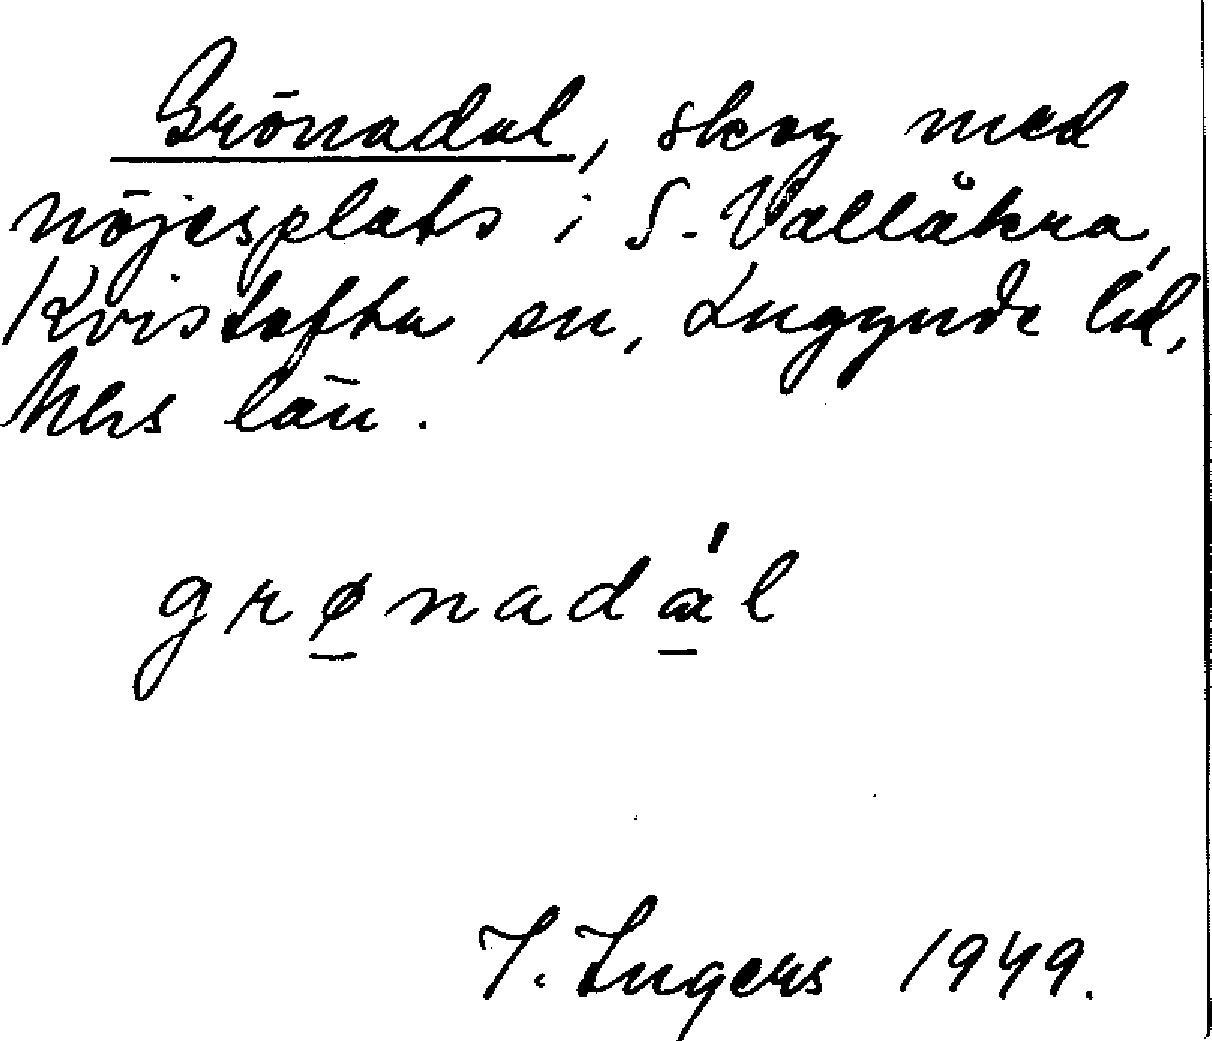 Grönadal, skog med
nöjesplats i S. Vallåkra,
Kvistofta sn, Luggude hd,
Mhs län.
grø̱nadɑ̱́l
I. Ingers 1949.